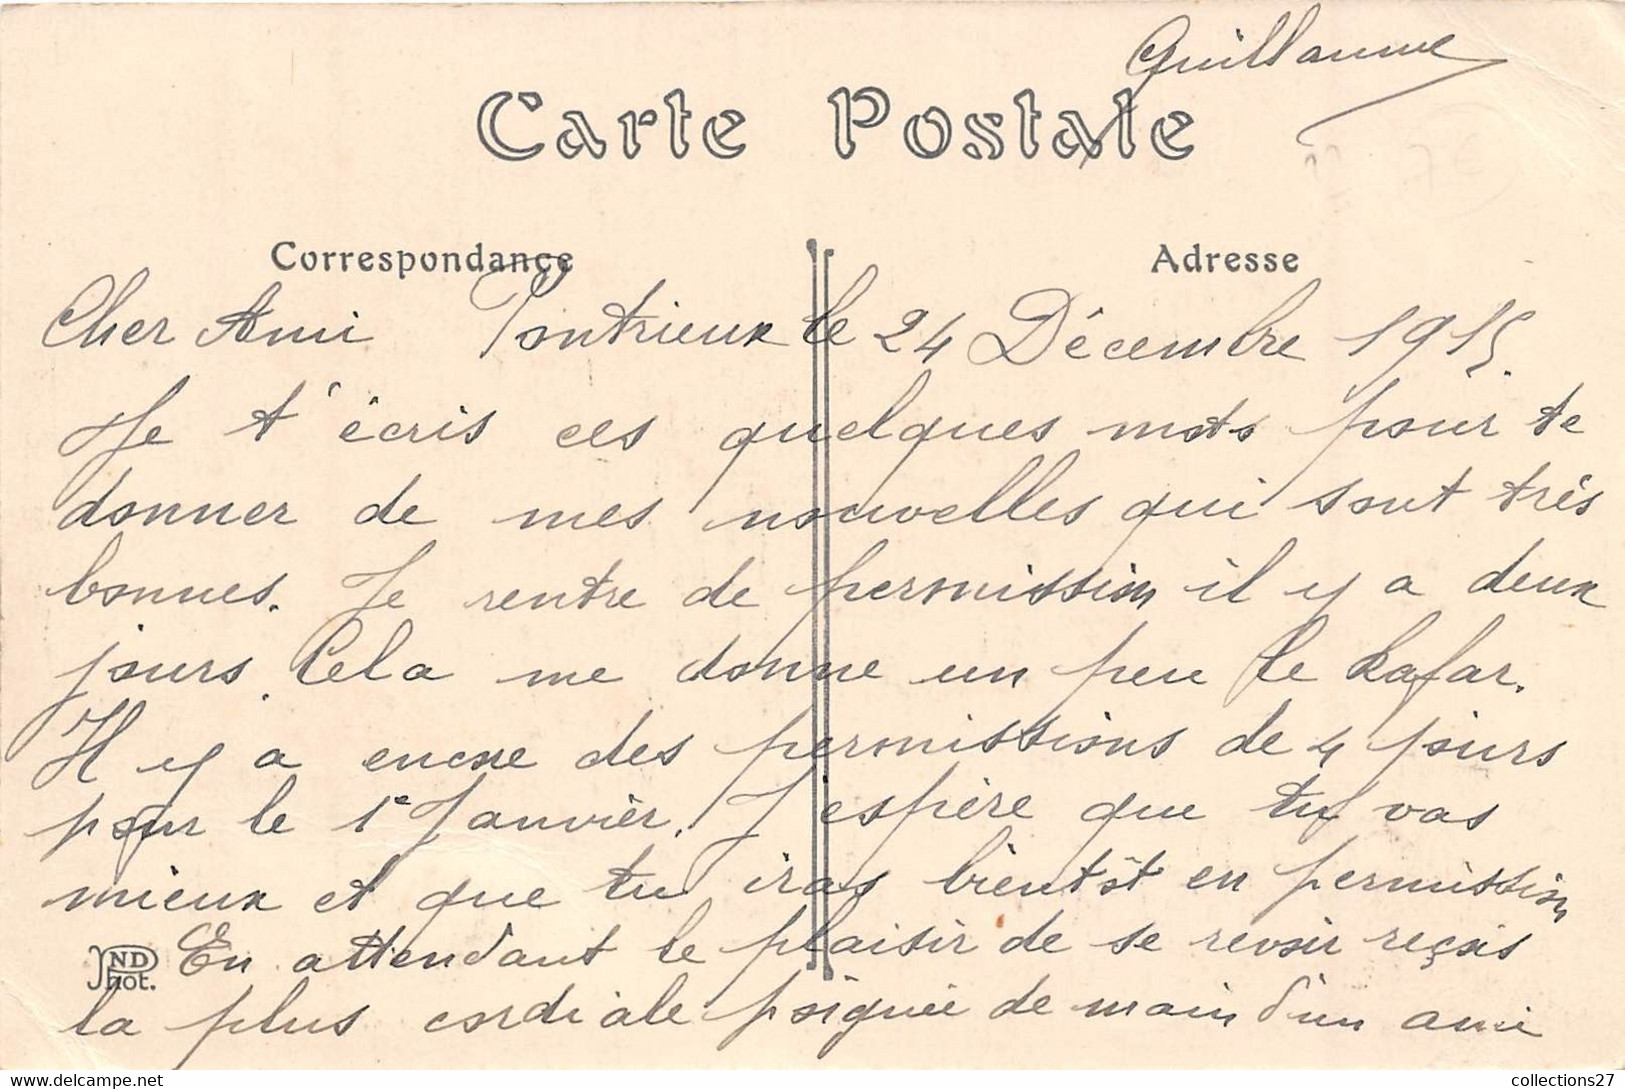 Guillaume
Carte Postale
Correspondance
Adresse
Cher Ami Pontrieux le 24 Décembre 1915
Je t'écris ces quelques mots pour te
donner de mes nouvelles qui sont très
bonnes. Je rentre de permission il y a deux
jours. Cela me donne un peu le kafar.
Il y a encore des permissions de 4 jours
pour le 1e Janvier. J'espère que tu vas
mieux et que tu iras bientôt en permission
En attendant le plaisir de se revoir reçois
ND Phot.
la plus cordiale poignée de main d'un ami
collections27